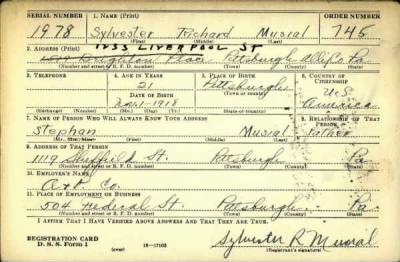 SERIAL NUMBER 1. NAME (Print) ORDER NUMBER
1978 Sylvester Richard Musial 745
(First) (Middle) (Last)
1233 LIVERPOOL ST
3. ADDRESS (Print)
Brighton Place Pittsburgh Alleg Co Pa.
(Number and street or R. F. D. number) (Town) (County) (State)
3. TELEPHONE 4. AGE IN YEARS 5. PLACE OF BIRTH 6. COUNTRY OF CITIZENSHIP
21 Pittsburgh U.S.
DATE OF BIRTH (Town or county)
1-1918 Pa. America
(Exchange) (Number) (Mo.) (Day) (Yr.) (State or country)
7. NAME OF PERSON WHO WILL ALWAYS KNOW YOUR ADDRESS 8. RELATIONSHIP OF THAT PERSON
Stephan Musial Father
(Mr., Mrs., Miss) (First) (Middle) (Last)
9. ADDRESS OF THAT PERSON
1119 Sheffield St. Pittsburgh Pa
(Number and street or R. F. D. number) (Town) (County) (State)
10. EMPLOYER'S NAME
Co.
11. PLACE OF EMPLOYMENT OR BUSINESS
504 Federal St. Pittsburgh. Pa.
(Number and street or R. F. D. number) (Town) (County) (State)
I AFFIRM THAT I HAVE VERIFIED ABOVE ANSWERS AND THAT THEY ARE TRUE.
REGISTRATION CARD
D. S. S. Form 1 (over) 16—17105 Sylvester R Musial
(Registrant's signature)